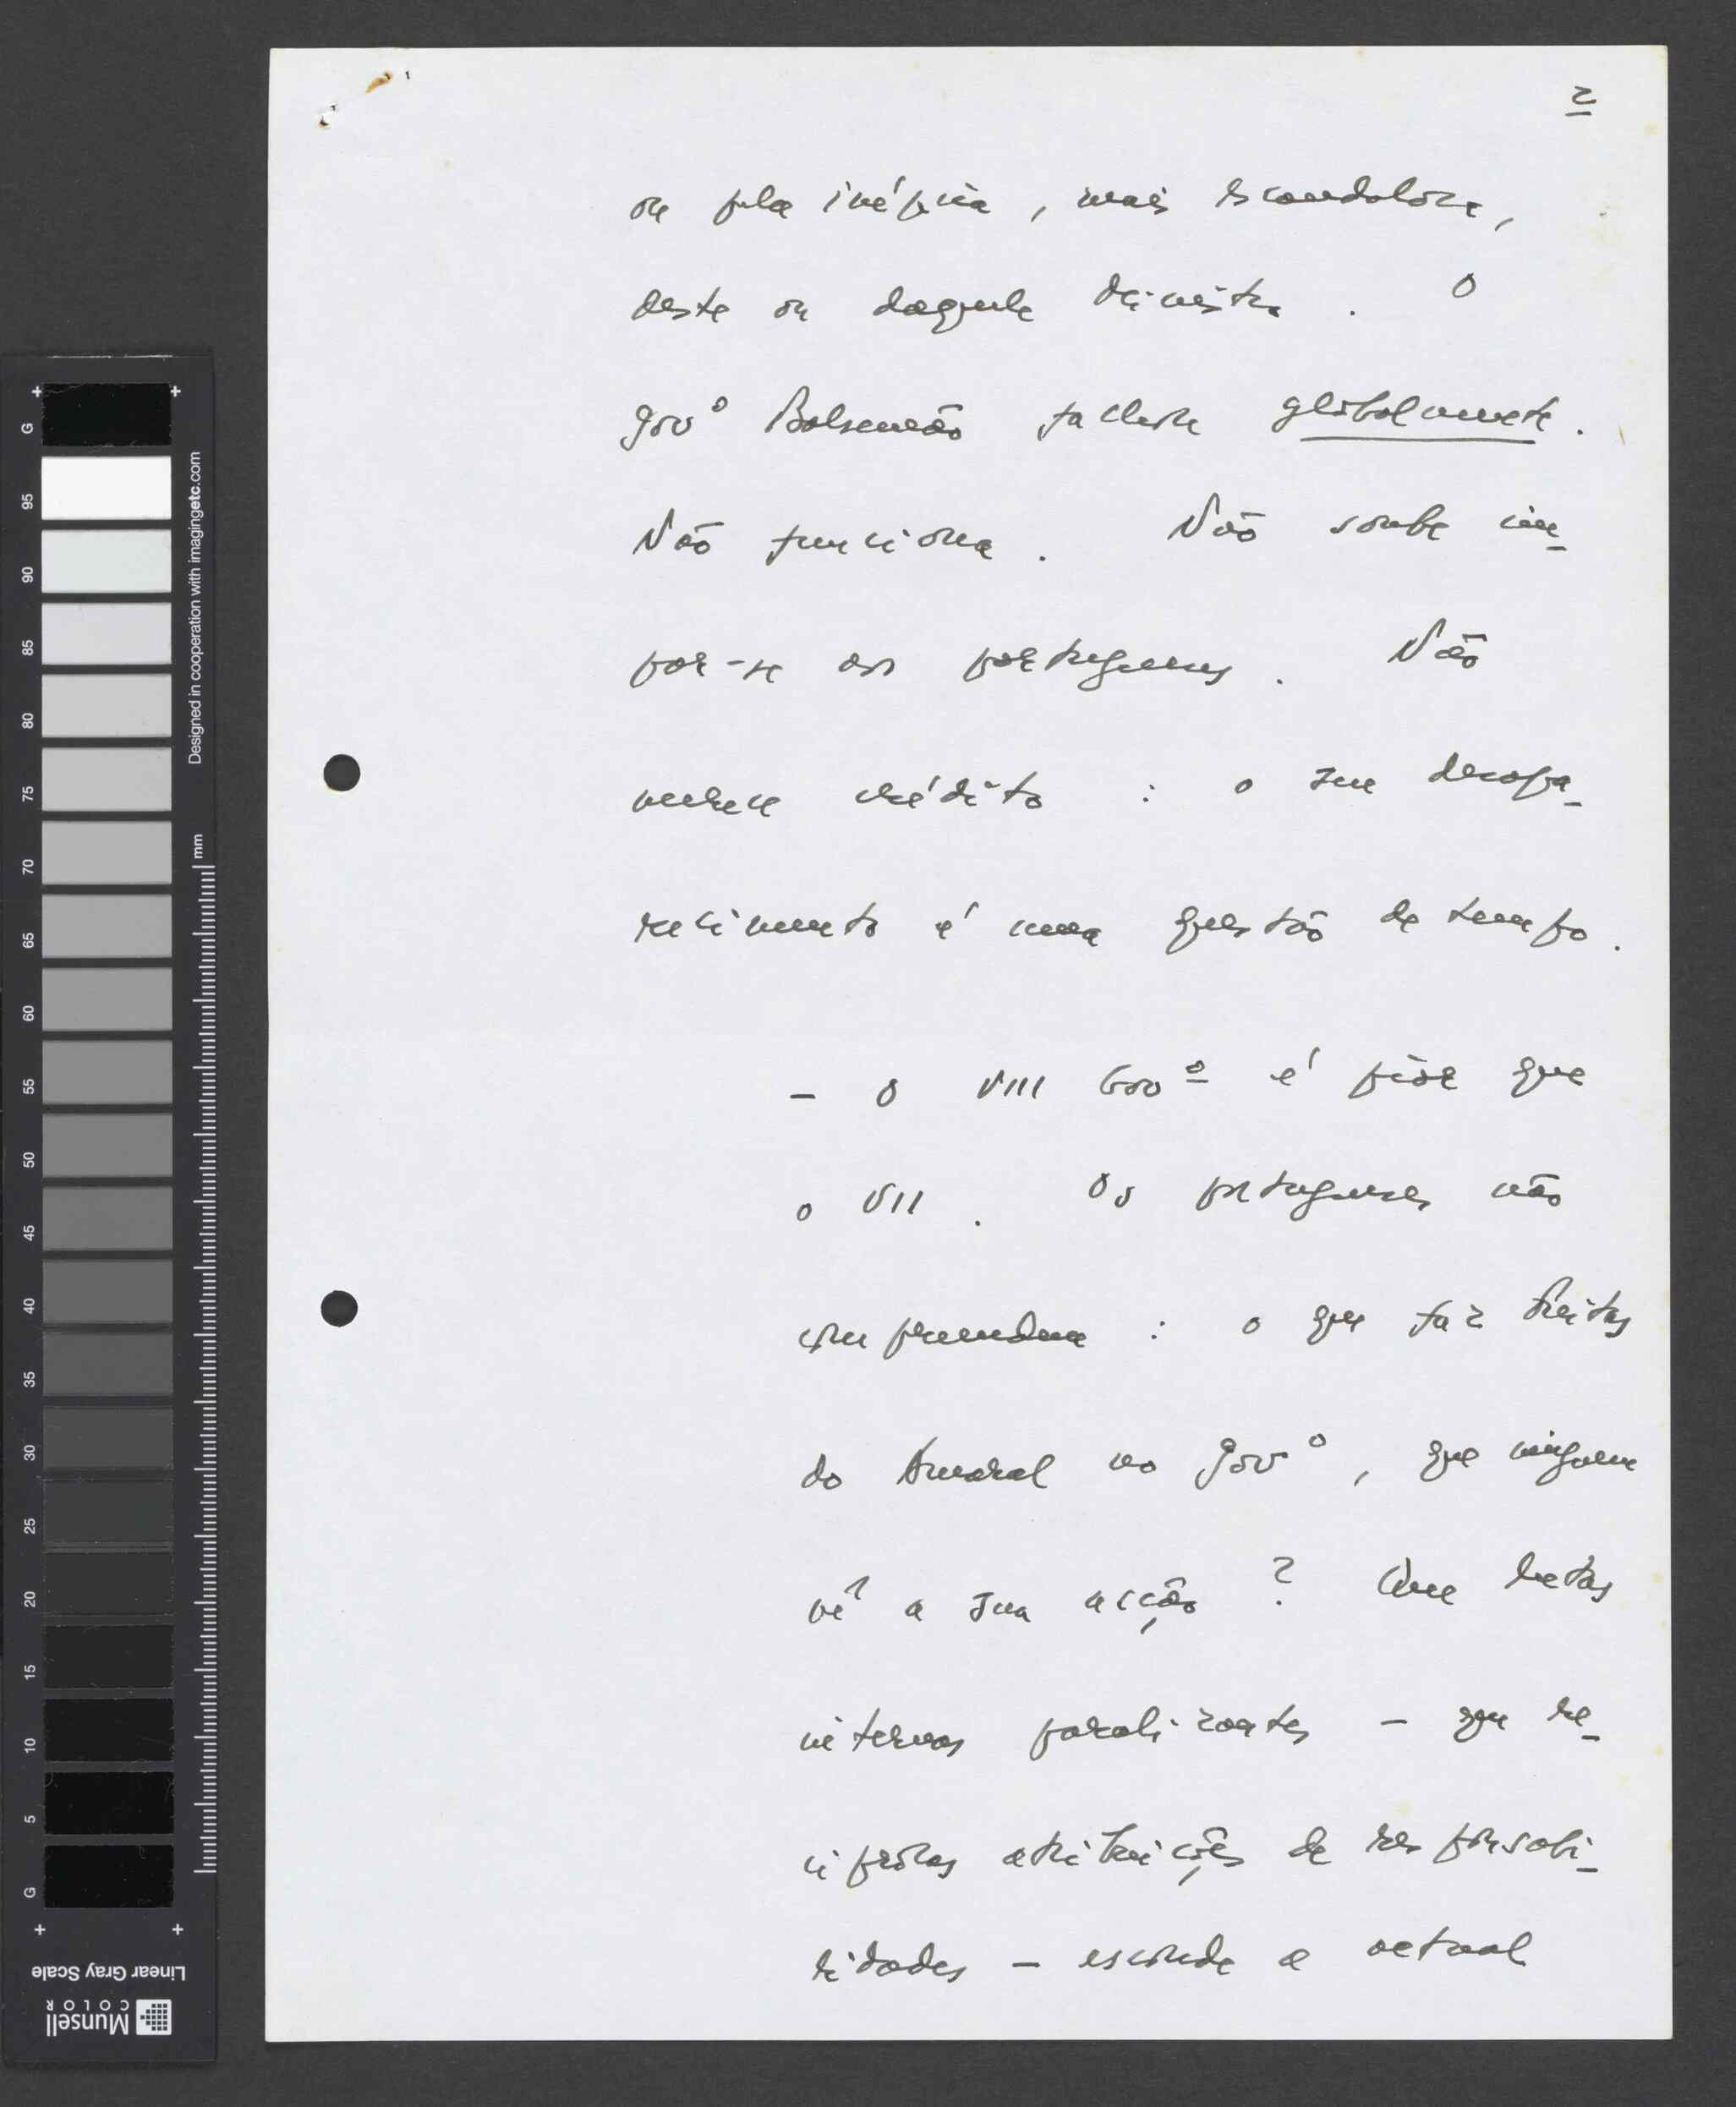 2
ou pela inépcia, mais escandalosa,
deste ou daquele Ministro. O
govº Balsemão falhou globalmente.
Não funciona. Não soube im-
por-se aos portugueses. Não
merece crédito: o seu desapa-
recimento é uma questão de tempo.
- O VIII Govº é pior que
o VII. Os portugueses não
compreendem: o que faz Freitas
do Amaral no govº, que ninguem
vê a sua acção? Que lutas
internas paralizantes - que re-
ciprocas atribuições de responsabi-
lidades - esconde a actual
G
95
90
85
80
75
70
65
60
55
50
45
40
35
30
25
20
15
10
5
G
Designed in cooperation with imagingetc.com
mm
Linear Gray Scale
Munsell
COLOR